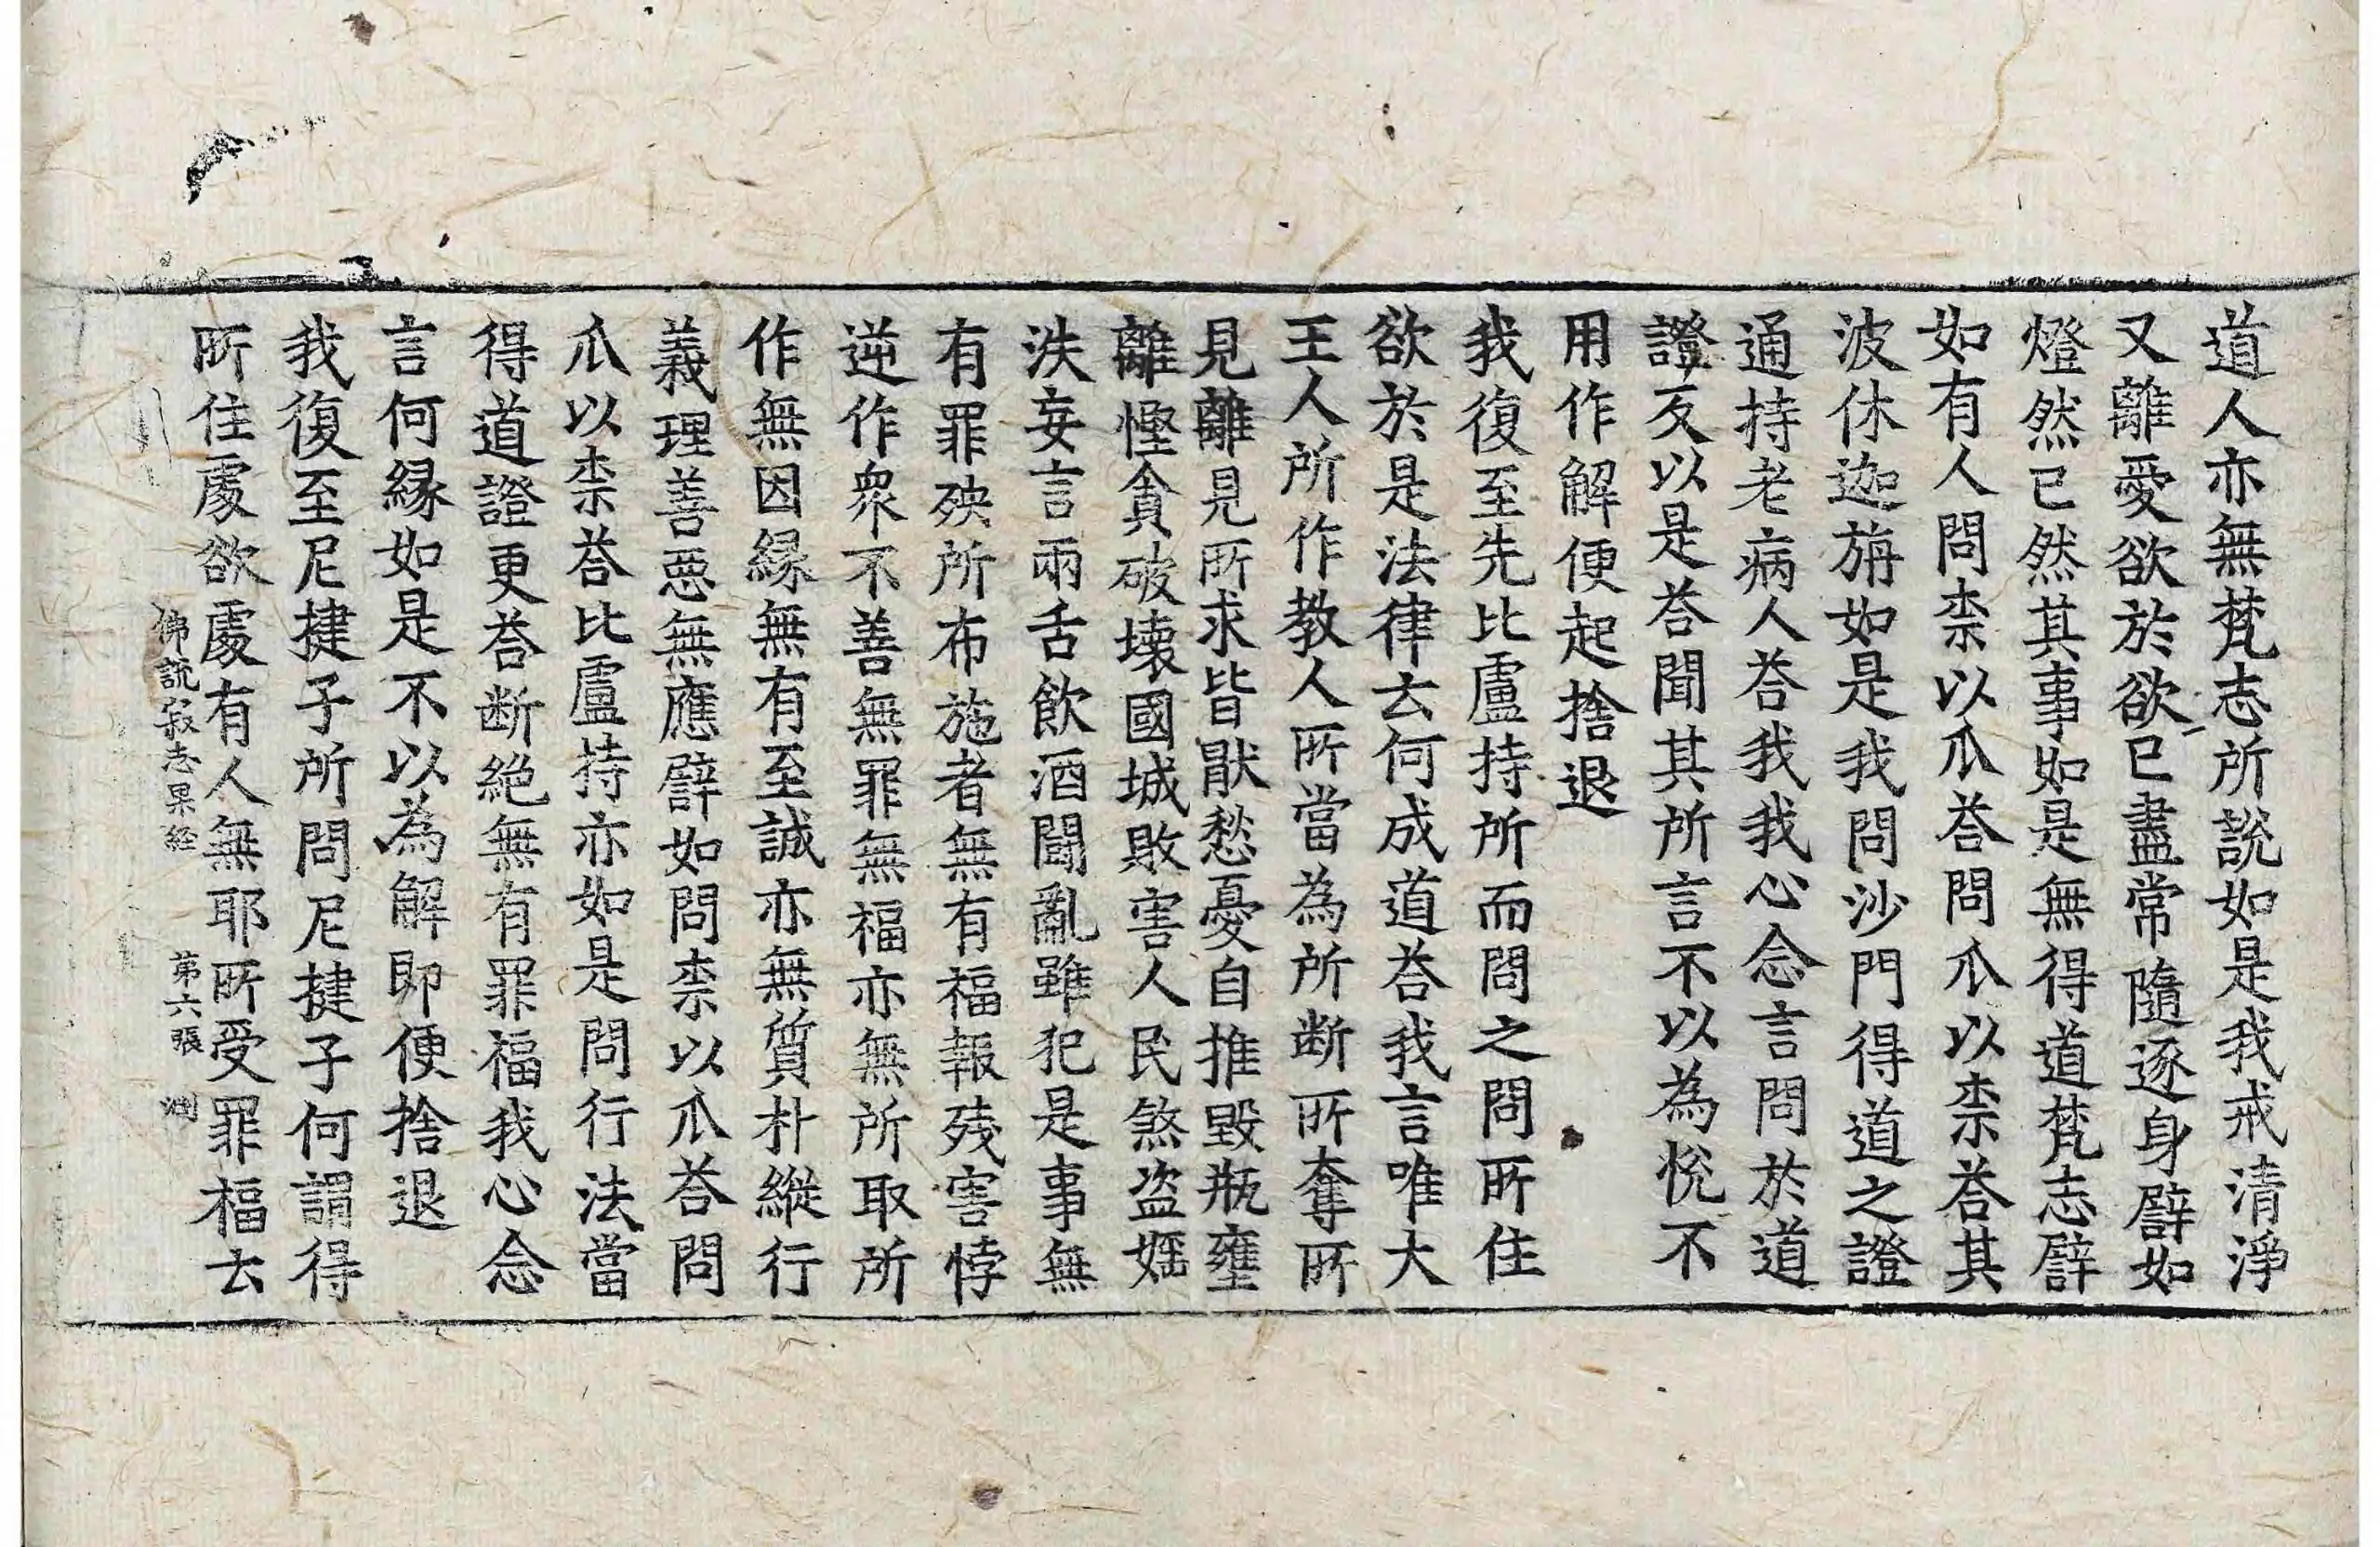 道人亦無梵志所說如是我戒清淨
又離愛欲於欲已盡常隨逐身譬如
燈然已然其事如是無得道梵志譬
如有人問柰以爪荅問爪以柰荅其
波休迦旃如是我問沙門得道之證
通持老病人荅我我心念言問於道
證反以是荅聞其所言不以為悅不
用作解便起捨退
我復至先比盧持所而問之問所住
欲於是法律云何成道荅我言唯大
王人所作教人所當為所断所奪所
見離見所求皆猒愁憂自推毀瓶壅
離慳貪破壊國城敗害人民煞盜婬
泆妄言兩舌飲酒鬪亂雖犯是事無
有罪殃所布施者無有福報殘害悖
逆作衆不善無罪無福亦無所取所
作無因緣無有至誠亦無質朴縱行
義理善惡無應譬如問柰以爪荅問
爪以柰荅比盧持亦如是問行法當
得道證更荅断絕無有罪福我心念
言何緣如是不以為解即便捨退
我復至尼揵子所問尼揵子何謂得
所住處欲處有人無耶所受罪福云
佛說寂志果経 第六張